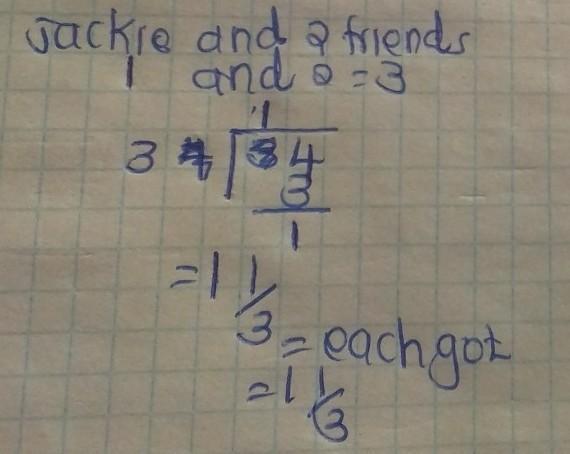 Jackie and 2 friends
1 and 2 = 3
1
3 4
3
1
= 1 1/3
= each got
= 1 1/3